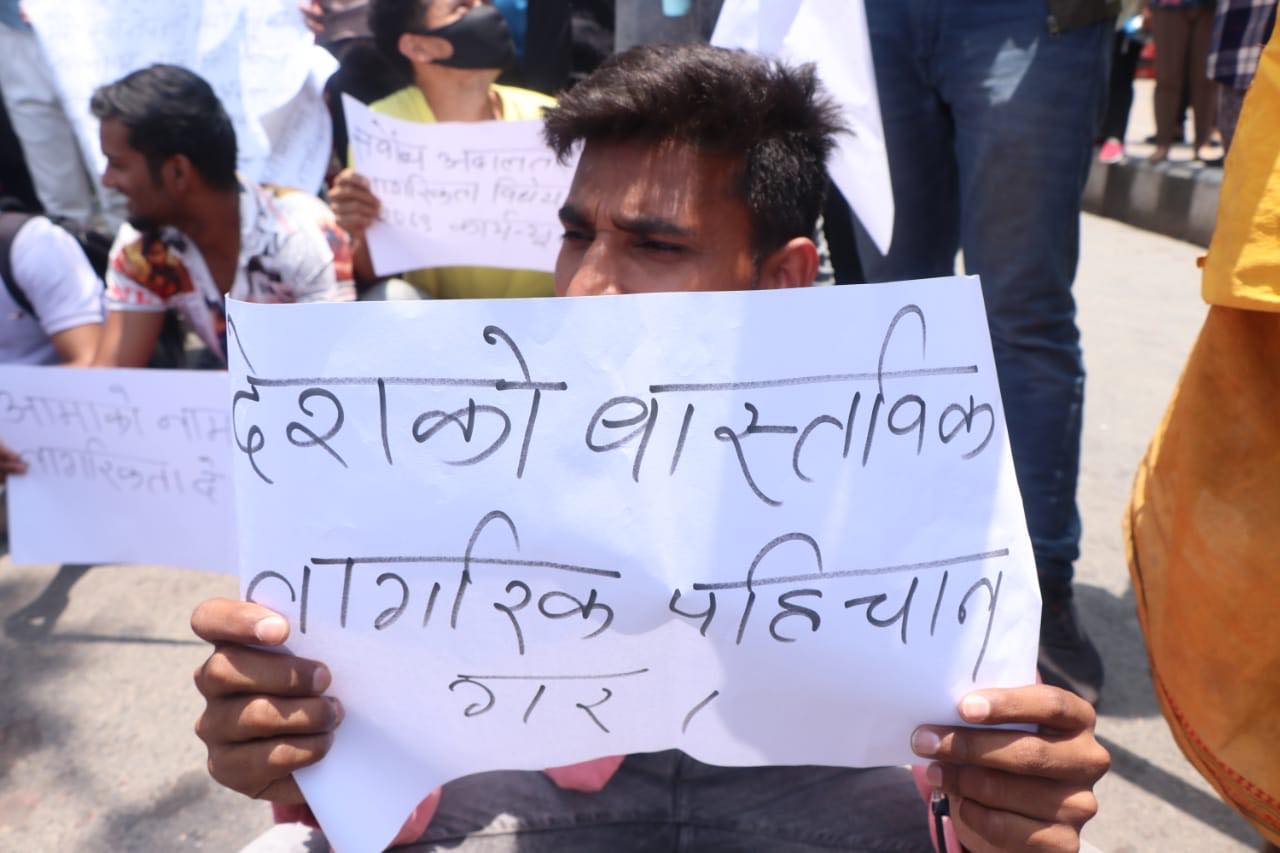 सर्वोच्च अदालत
नागरिकता विधेय
कार्य
देशको वास्तविक
नागरिक पहिचान
गर ।
आमाको नाम
नागरिकता दे